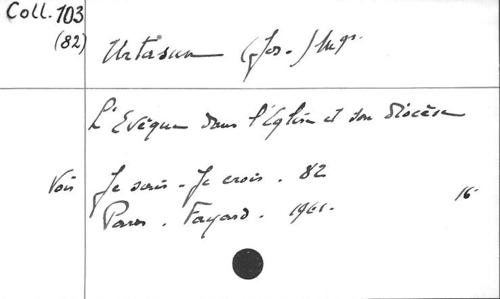 Coll. 103
(82)
Urtasun (Jos.) Mgr.
L'Evêque dans l'Eglise et son diocèse
Voir Je sais - Je crois. 82
Paris. Fayard. 1961. 16